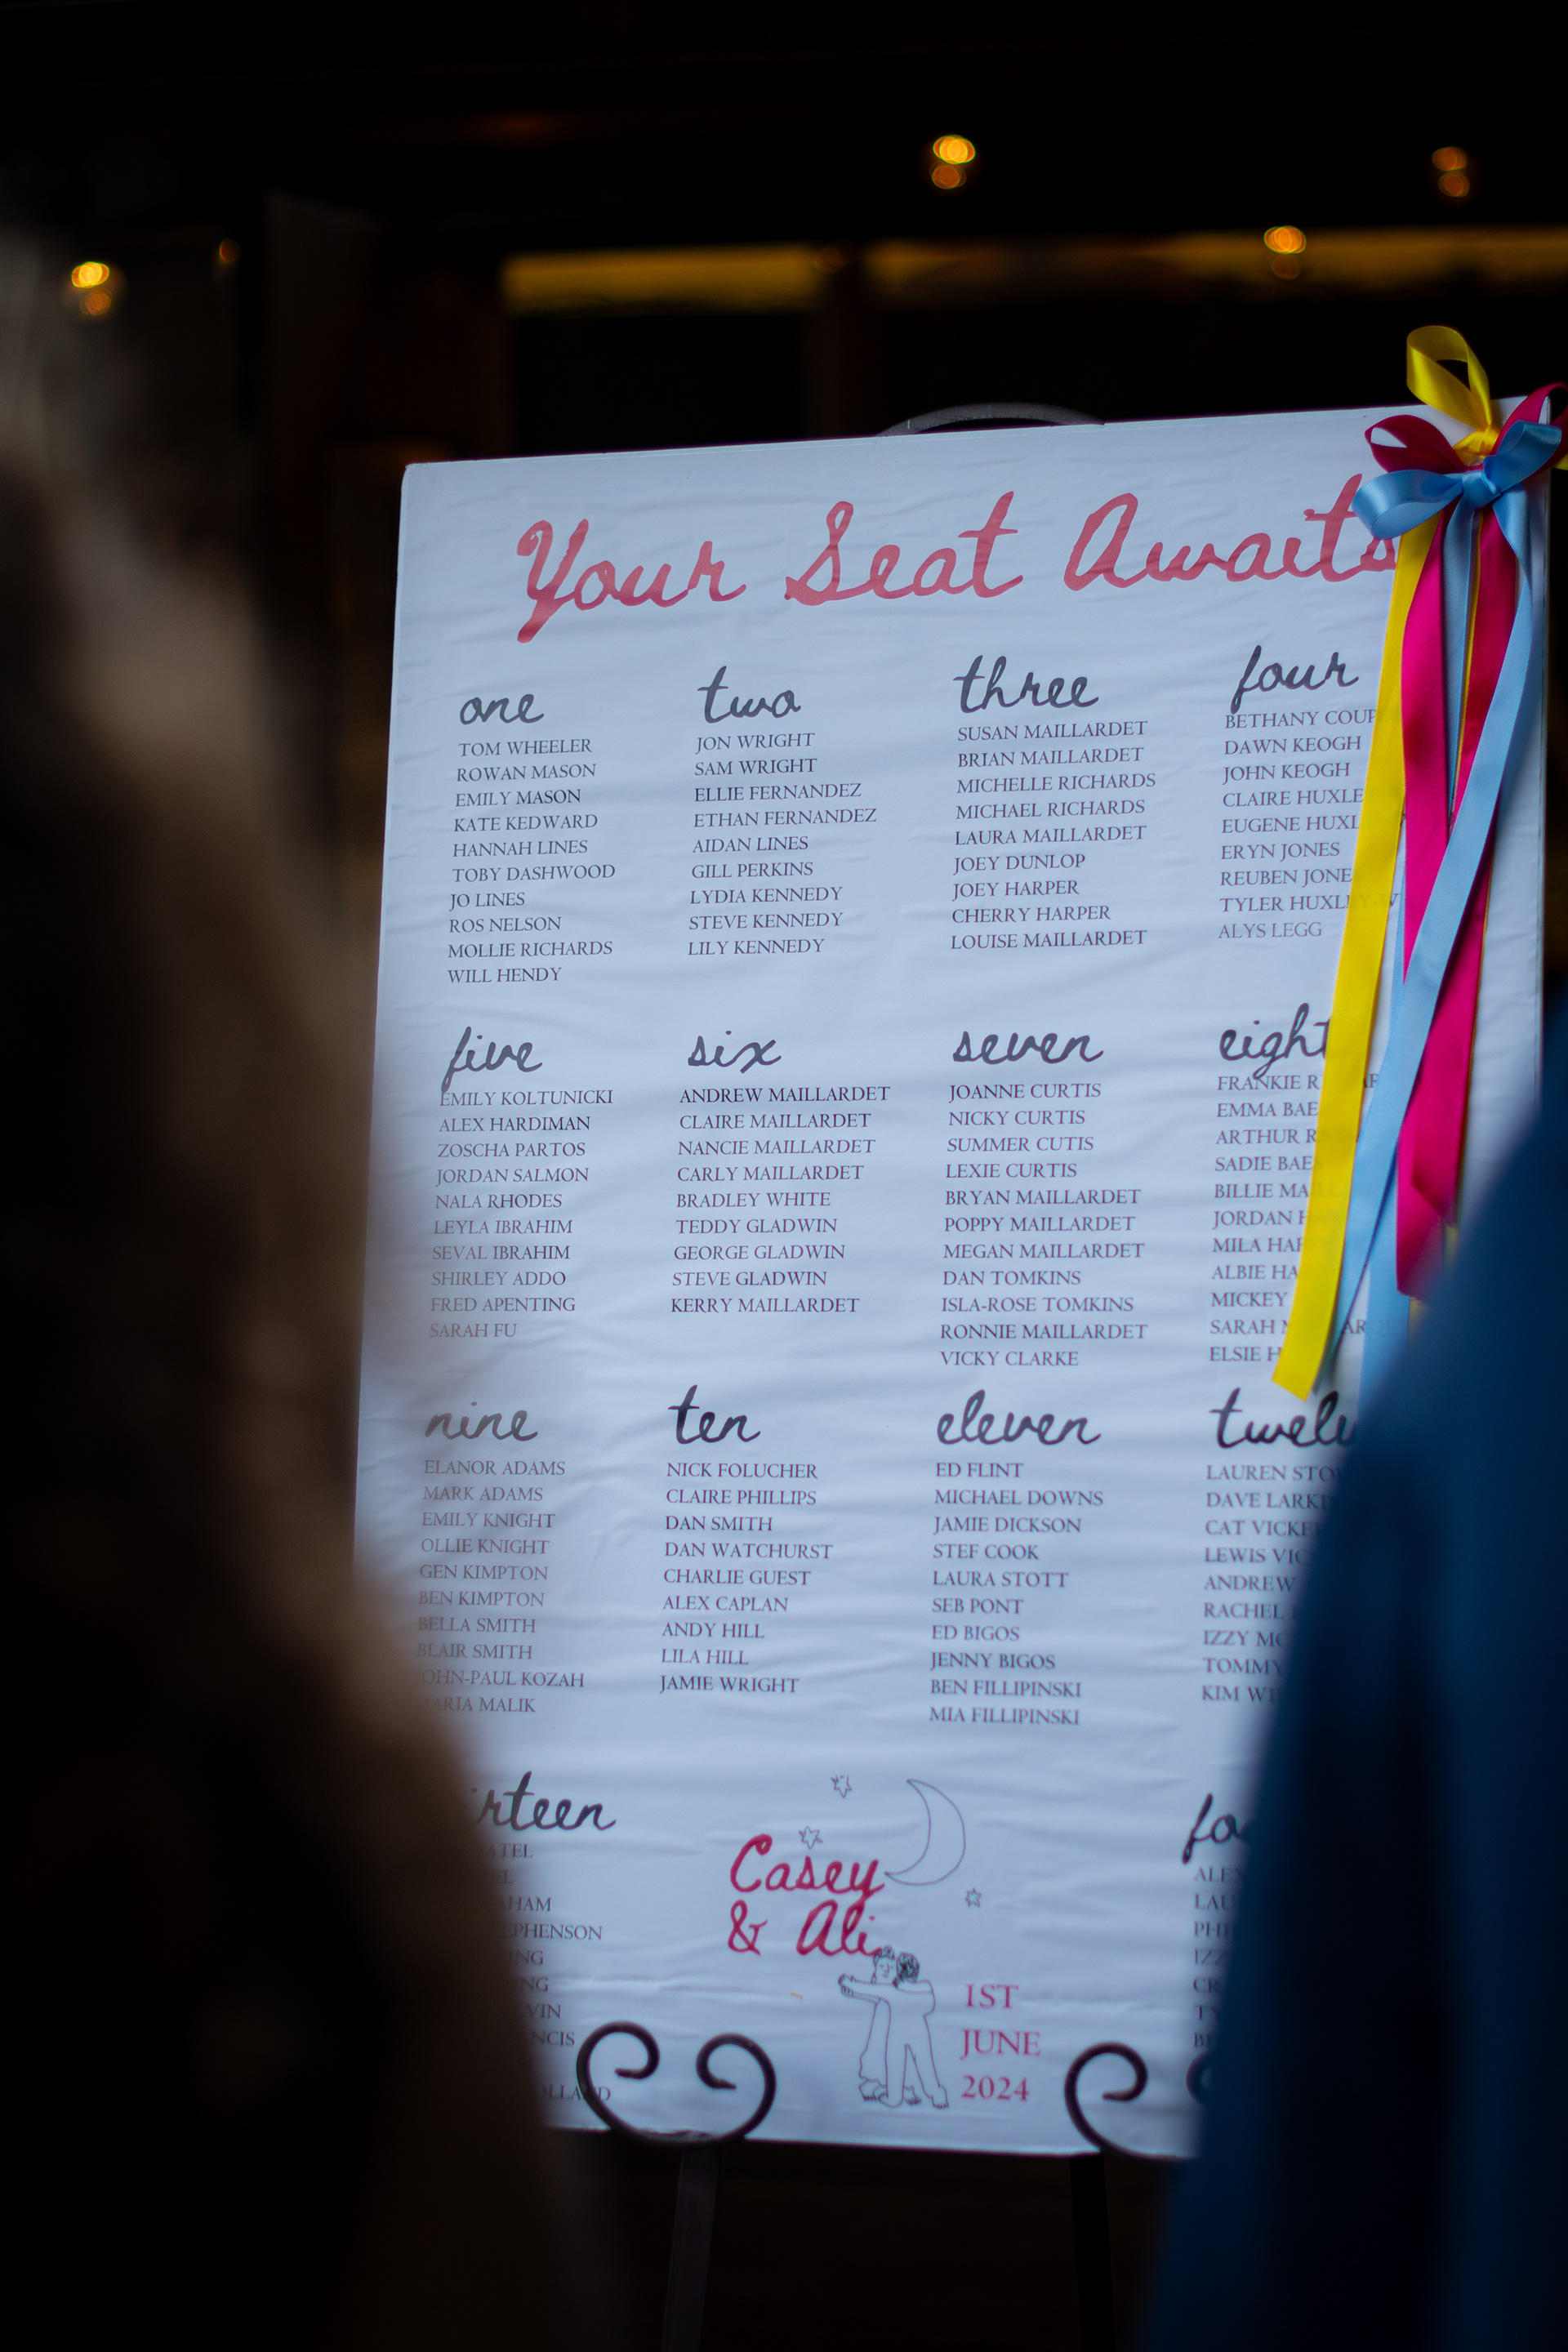 Your Seat Awaits
one
TOM WHEELER
ROWAN MASON
EMILY MASON
KATE KEDWARD
HANNAH LINES
TOBY DASHWOOD
JO LINES
ROS NELSON
MOLLIE RICHARDS
WILL HENDY
two
JON WRIGHT
SAM WRIGHT
ELLIE FERNANDEZ
ETHAN FERNANDEZ
AIDAN LINES
GILL PERKINS
LYDIA KENNEDY
STEVE KENNEDY
LILY KENNEDY
three
SUSAN MAILLARDET
BRIAN MAILLARDET
MICHELLE RICHARDS
MICHAEL RICHARDS
LAURA MAILLARDET
JOEY DUNLOP
JOEY HARPER
CHERRY HARPER
LOUISE MAILLARDET
four
BETHANY
DAWN KEOGH
JOHN KEOGH
CLAIRE
EUGENE
ERYN JONES
REUBEN
TYLER
ALYS LEGG
five
EMILY KOLTUNICKI
ALEX HARDIMAN
ZOSCHA PARTOS
JORDAN SALMON
NALA RHODES
LEYLA IBRAHIM
SEVAL IBRAHIM
SHIRLEY ADDO
FRED APENTING
SARAH FU
six
ANDREW MAILLARDET
CLAIRE MAILLARDET
NANCIE MAILLARDET
CARLY MAILLARDET
BRADLEY WHITE
TEDDY GLADWIN
GEORGE GLADWIN
STEVE GLADWIN
KERRY MAILLARDET
seven
JOANNE CURTIS
NICKY CURTIS
SUMMER CUTIS
LEXIE CURTIS
BRYAN MAILLARDET
POPPY MAILLARDET
MEGAN MAILLARDET
DAN TOMKINS
ISLA-ROSE TOMKINS
RONNIE MAILLARDET
VICKY CLARKE
eight
FRANKIE
EMMA
ARTHUR
SADIE
BILLIE
JORDAN
MILA
ALBIE
MICKEY
SARAH
ELSIE
nine
ELANOR ADAMS
MARK ADAMS
EMILY KNIGHT
OLLIE KNIGHT
GEN KIMPTON
BEN KIMPTON
BELLA SMITH
BLAIR SMITH
JOHN-PAUL KOZAH
MARIA MALIK
ten
NICK FOLUCHER
CLAIRE PHILLIPS
DAN SMITH
DAN WATCHURST
CHARLIE GUEST
ALEX CAPLAN
ANDY HILL
LILA HILL
JAMIE WRIGHT
eleven
ED FLINT
MICHAEL DOWNS
JAMIE DICKSON
STEF COOK
LAURA STOTT
SEB PONT
ED BIGOS
JENNY BIGOS
BEN FILLIPINSKI
MIA FILLIPINSKI
LAUREN
DAVE
CAT
LEWIS
ANDREW
RACHEL
IZZY
TOMMY
KIM
Casey
& Ali
1ST
JUNE
2024